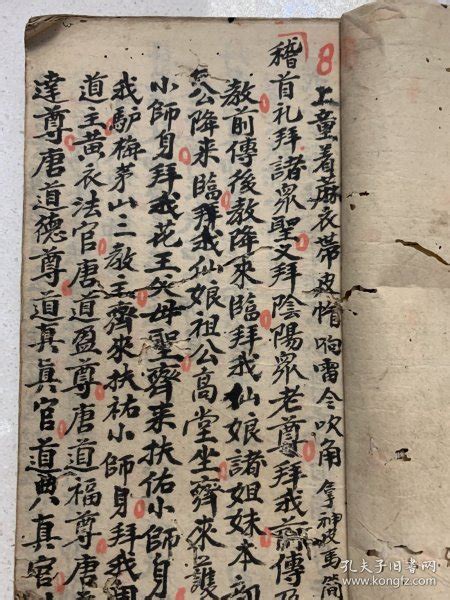 8
上童着蔴衣帶皮帽响雷令吹角拿神皮馬簡
稽首礼拜諸眾聖又拜陰陽眾老尊拜我前傳及
教前傳後教降來臨拜我仙娘諸姐妹本部
公降来臨拜我仙娘祖公高堂坐齊來護
小師身拜我花王父母聖齊来扶佑小師身
我驴梅茅山三教主齊來扶祐小師身拜我
道王黄衣法官唐道盈尊唐道福尊唐
達尊唐道德尊道真真官道典真官
孔夫子旧书网
www.kongfz.com